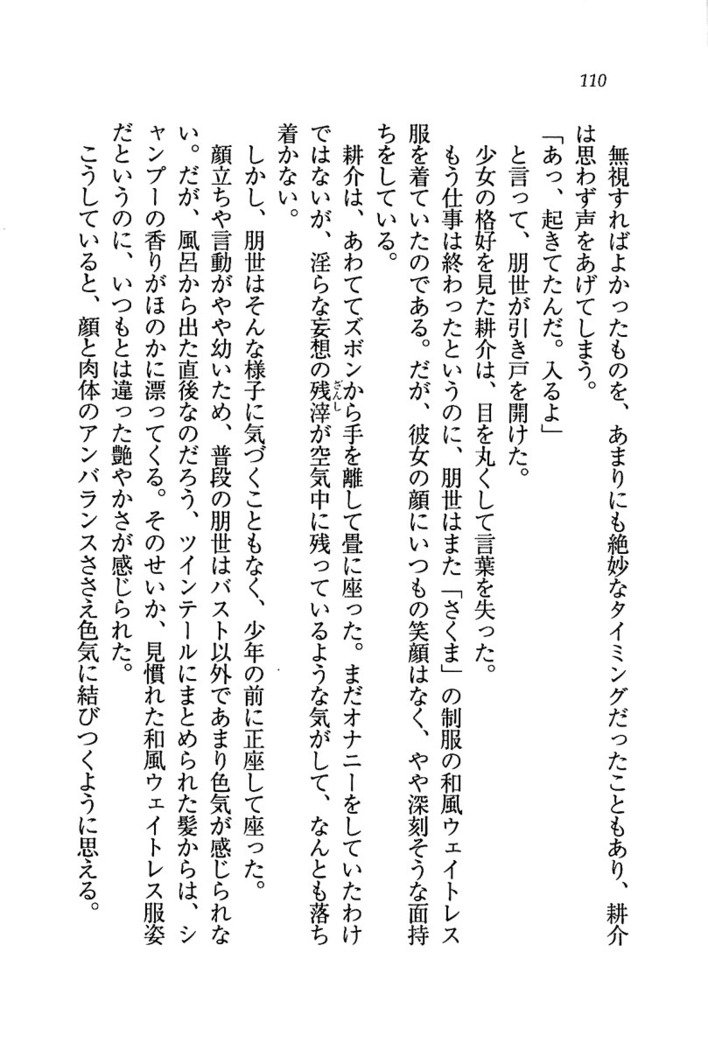 110
無視すればよかったものを、あまりにも絶妙なタイミングだったこともあり、耕介
は思わず声をあげてしまう。
「あっ、起きてたんだ。入るよ」
と言って、朋世が引き戸を開けた。
少女の格好を見た耕介は、目を丸くして言葉を失った。
もう仕事は終わったというのに、朋世はまた「さくま」の制服の和風ウェイトレス
服を着ていたのである。だが、彼女の顔にいつもの笑顔はなく、やや深刻そうな面持
ちをしている。
耕介は、あわててズボンから手を離して畳に座った。まだオナニーをしていたわけ
ではないが、淫らな妄想の残滓ざんしが空気中に残っているような気がして、なんとも落ち
着かない。
しかし、朋世はそんな様子に気づくこともなく、少年の前に正座して座った。
顔立ちや言動がやや幼いため、普段の朋世はバスト以外であまり色気が感じられな
い。だが、風呂から出た直後なのだろう、ツインテールにまとめられた髪からは、シ
ャンプーの香りがほのかに漂ってくる。そのせいか、見慣れた和風ウェイトレス服姿
だというのに、いつもとは違った艶やかさが感じられた。
こうしていると、顔と肉体のアンバランスささえ色気に結びつくように思える。